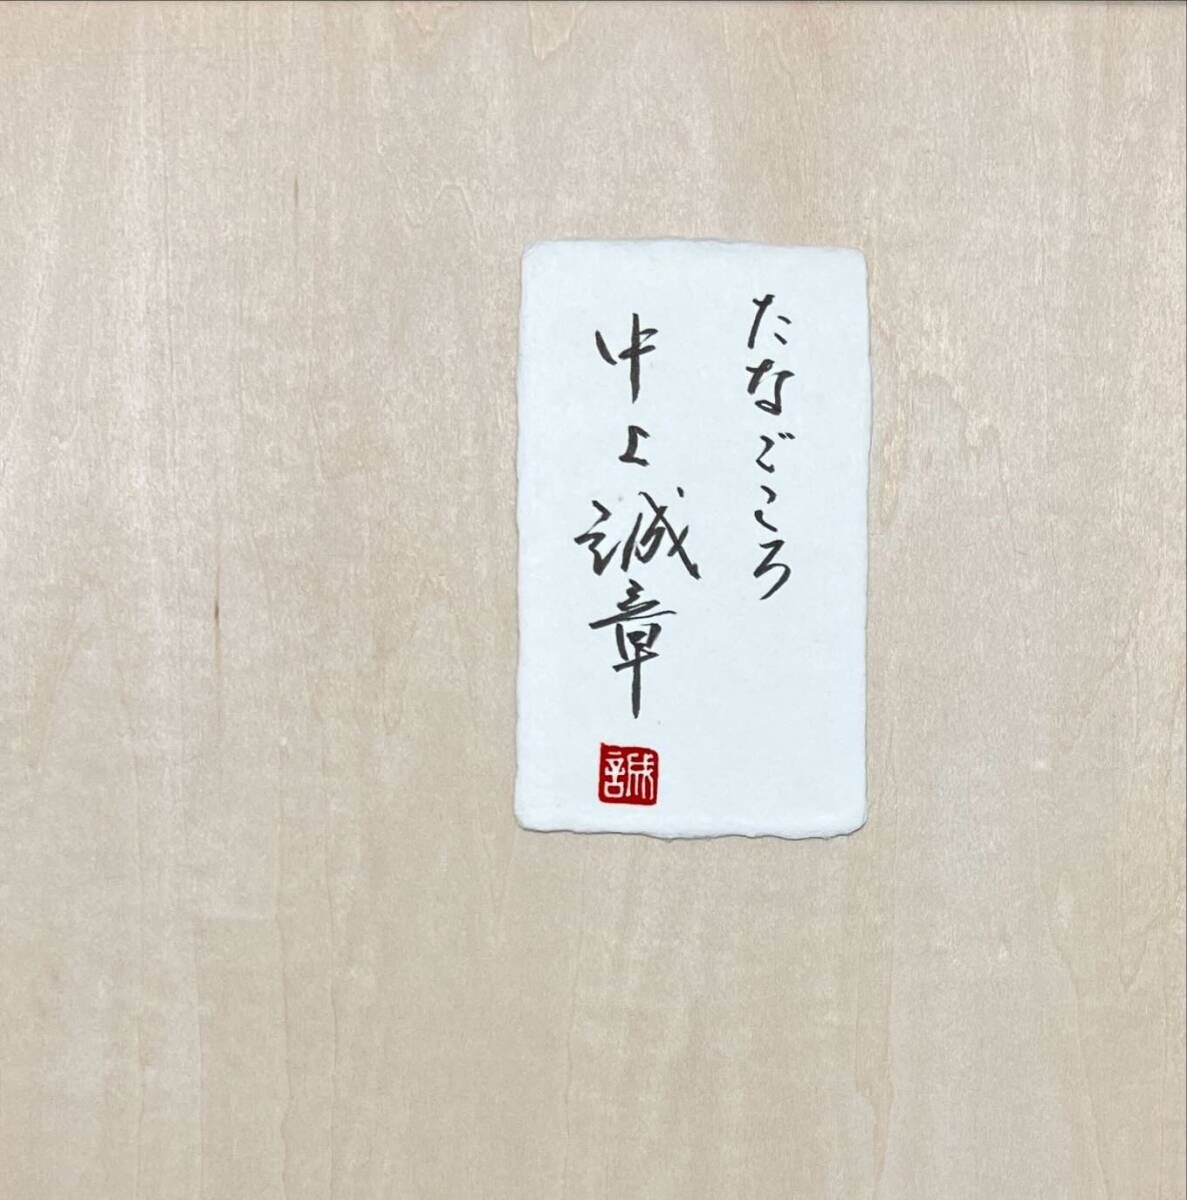 たなごころ
中上誠章
誠